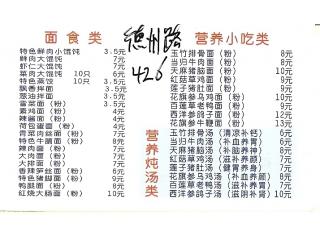 面食类
特色鲜肉小馄饨 3.5元
鲜肉大馄饨 7元
虾仁大馄饨 7元
菜肉大馄饨 10只 6元
特色蒸饺 10只 3.5元
飘香拌面 3.5元
葱油拌面 3.5元
雪菜面(粉) 3.5元
素鸡面(粉) 4元
辣酱面(粉) 4元
荷包蛋面(粉) 4元
青菜肉丝面(粉) 7元
特色牛腩面(粉) 8元
辣肉面(粉) 7元
大肉面(粉) 7元
大排面(粉) 7元
香辣笋丝面(粉) 6元
特色猪脚面(粉) 9元
鸭腿面(粉) 8元
红烧大肠面(粉) 10元
德州路
426
营养小吃类
玉竹排骨面(粉) 8元
当归牛肉面(粉) 8元
天麻猪脑面(粉) 10元
红菇草鸡面(粉) 8元
莲子猪肚面(粉) 9元
花旗参乌鸡面(粉) 10元
百莲草老鸭面(粉) 9元
西洋参鸽子面(粉) 12元
花旗参牛鞭面(粉) 13元
营养炖汤类
玉竹排骨汤(清凉补钙) 6元
当归牛肉汤(补血养胃) 6元
天麻猪脑汤(补脑养神) 8元
红菇草鸡汤(滋补养颜) 7元
莲子猪肚汤(健脾养胃) 7元
花旗参乌鸡汤(补血养颜) 8元
百莲草老鸭汤(滋补养胃) 7元
西洋参鸽子汤(滋阴补肾) 10元